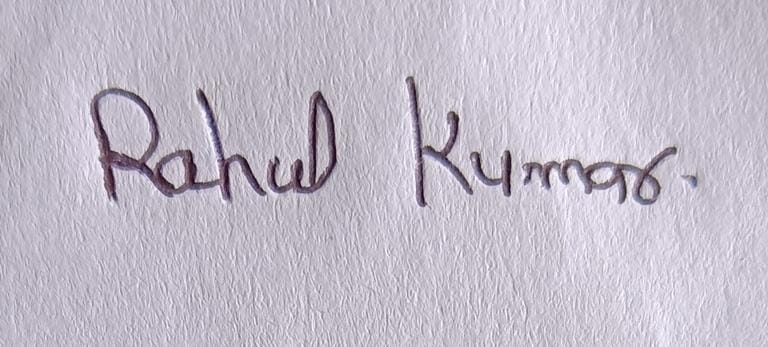 Rahul Kumar.